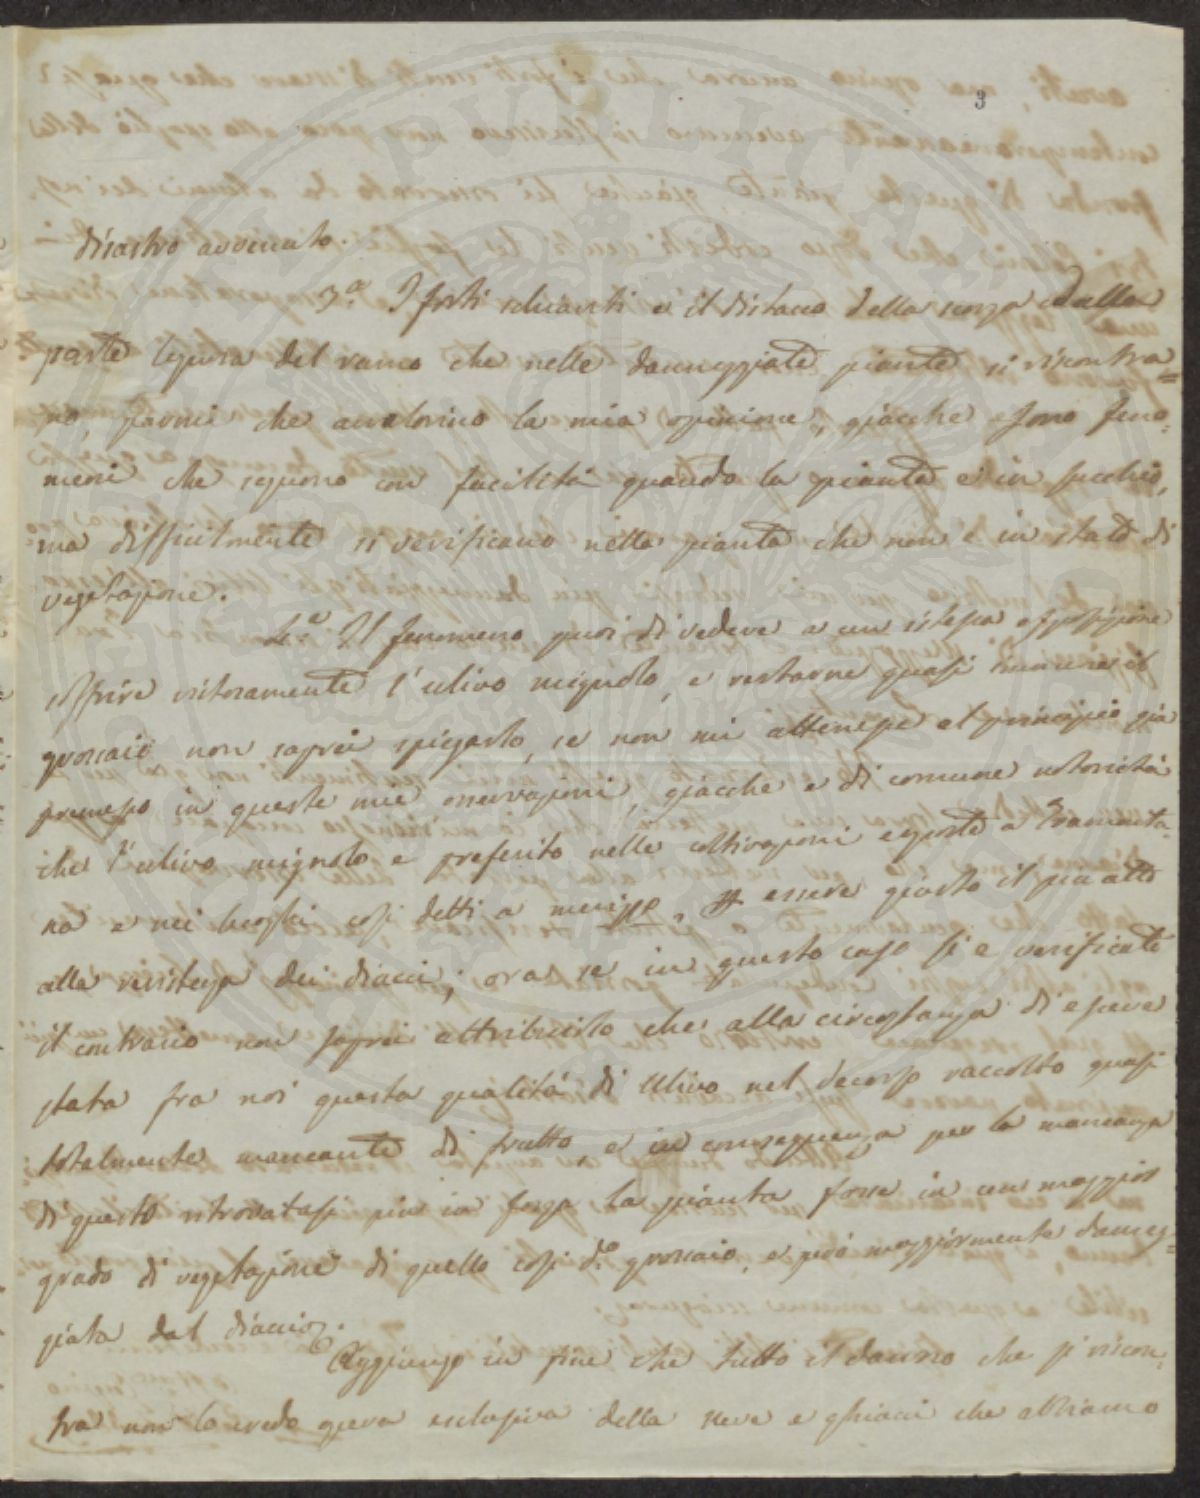 3
disastro avvenuto.
3.o I forti schianti e il distacco della scorza dalla
parte legnosa del ramo che nelle danneggiate piante si riscontra=
no, parmi che avvalorino la mia opinione, giacche sono feno-
meni che seguono con facilità quando la pianta è in succhio,
ma difficilmente si verificano nella pianta che non è in stato di
vegetazione.
4.o Il fenomeno poi di vedere a un istessa esposizione
soffrire interamente l'ulivo mignolo, e restarne quasi immune il
grossaio non saprei spiegarlo, se non mi attenessi al principio già
premesso in queste mie osservazioni, giacche è di comune notorietà
che l'ulivo mignolo e preferito nelle coltivazioni esposte a Tramonta-
na e nei luoghi così detti a meriggio, essere giusto il piu atto
alla resistenza dei diacci; ora se in questo caso si e verificato
il contrario non saprei attribuirlo che alla circostanza di essere
stata fra noi questa qualità di Ulivo nel decorso raccolto quasi
totalmente mancante di frutto, e in conseguenza per la mancanza
di questo ritrovatasi piu in forza la pianta fosse in un maggior
grado di vegetazione di quello così d.o grossaio, e però maggiormente danneg-
giata dal diaccio.
Aggiungo in fine che tutto il danno che si riscon-
tra non la credo opera esclusiva della neve e ghiacci che abbiamo